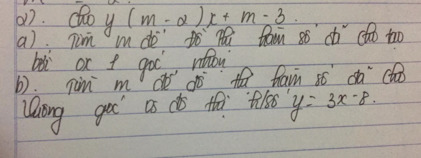 2). Cho y (m - 2) x + m - 3.
a). Tìm m để đồ thị hàm số đã cho tạo
bởi ox 1 góc nhọn
b). Tìm m để đồ thị hàm số đã cho
vuông góc đồ thị h/số y = 3x - 8.